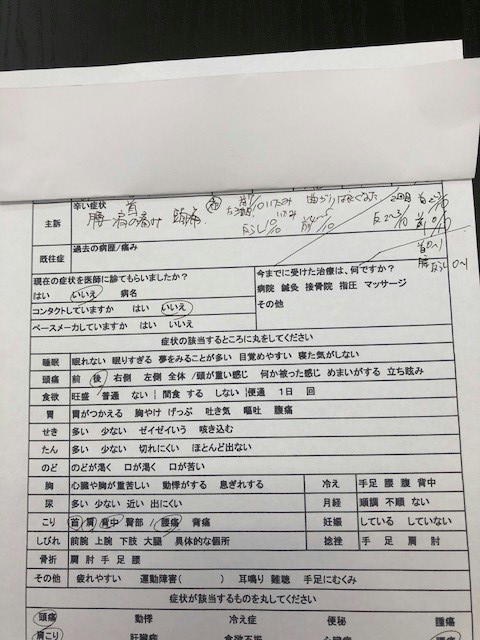 主訴 辛い症状
首
腰 肩の痛み 頭痛
既往症 過去の病歴/痛み
現在の症状を医師に診てもらいましたか?
はい いいえ 病名
コンタクトしていますか はい いいえ
ペースメーカしていますか はい いいえ
今までに受けた治療は、何ですか?
病院 鍼灸 接骨院 指圧 マッサージ
その他
症状の該当するところに丸をしてください
睡眠 眠れない 眠りすぎる 夢をみることが多い 目覚めやすい 寝た気がしない
頭痛 前 後 右側 左側 全体 /頭が重い感じ 何か被った感じ めまいがする 立ち眩み
食欲 旺盛 普通 ない | 間食 する しない | 便通 1日 回
胃 胃がつかえる 胸やけ げっぷ 吐き気 嘔吐 腹痛
せき 多い 少ない ゼイゼイいう 咳き込む
たん 多い 少ない 切れにくい ほとんど出ない
のど のどが渇く 口が渇く 口が苦い
胸 心臓や胸が重苦しい 動悸がする 息ぎれする 冷え 手足 腰 腹 背中
尿 多い 少ない 近い 出にくい 月経 順調 不順 ない
こり 首 肩 背中 臀部 / 腰痛 背痛 妊娠 している していない
しびれ 前腕 上腕 下肢 大腿 具体的な個所 捻挫 手 足 肩 肘
骨折 肩 肘 手 足 腰
その他 疲れやすい 運動障害( ) 耳鳴り 難聴 手足にむくみ
症状が該当するものを丸してください
頭痛 動悸 冷え症 便秘 腰痛
肩こり